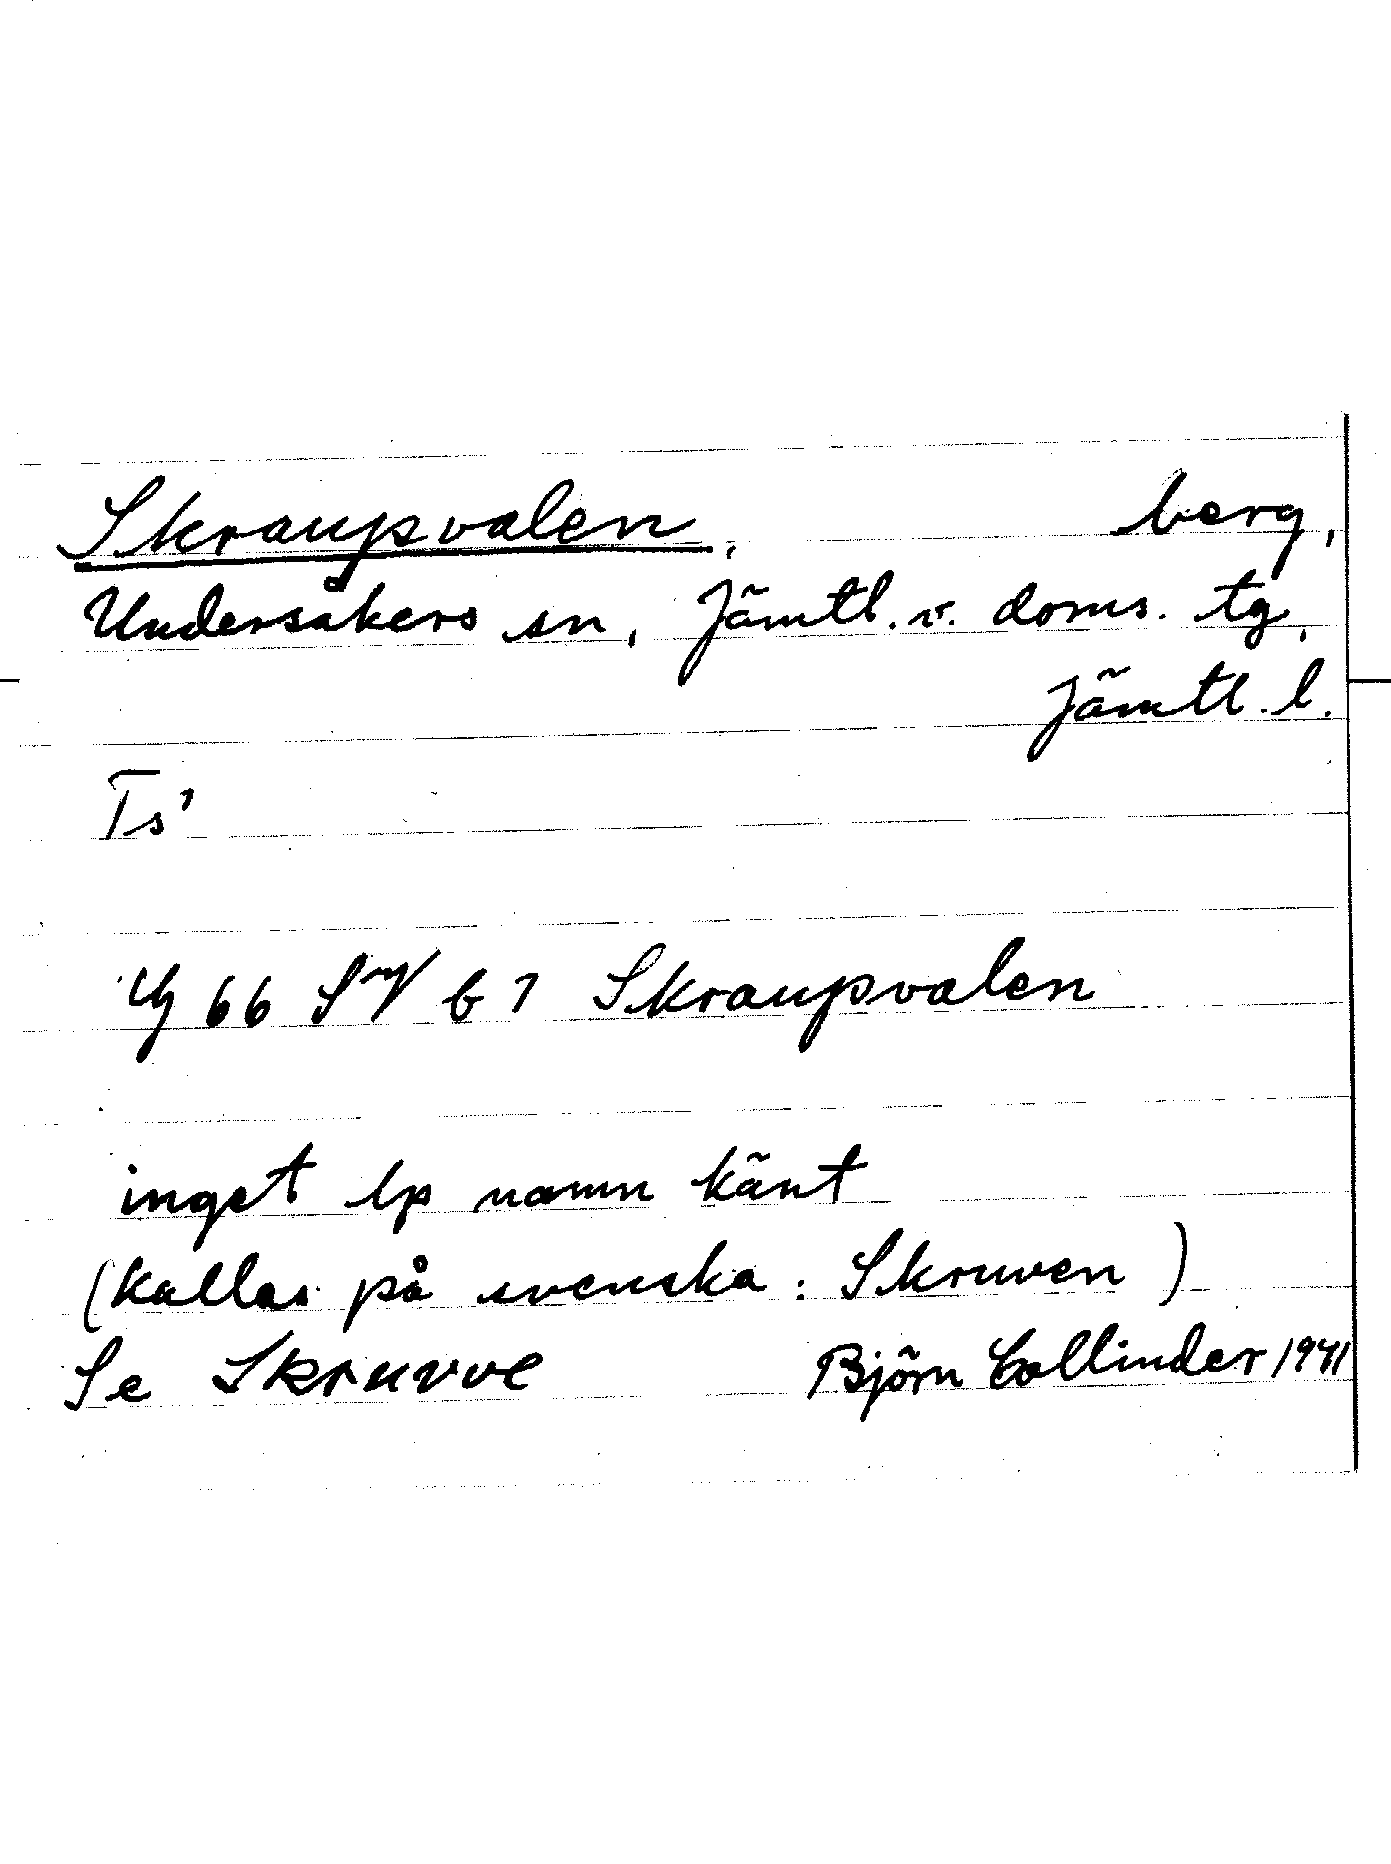 Skraupvalen, berg,
Undersåkers sn, Jämtl. v. doms. tg,
Jämtl. l.
Ts'
66 b 7 Skraupvalen
inget lp namn känt
(kallas på svenska: Skruven)
Se Skruvve Björn Collinder 1941